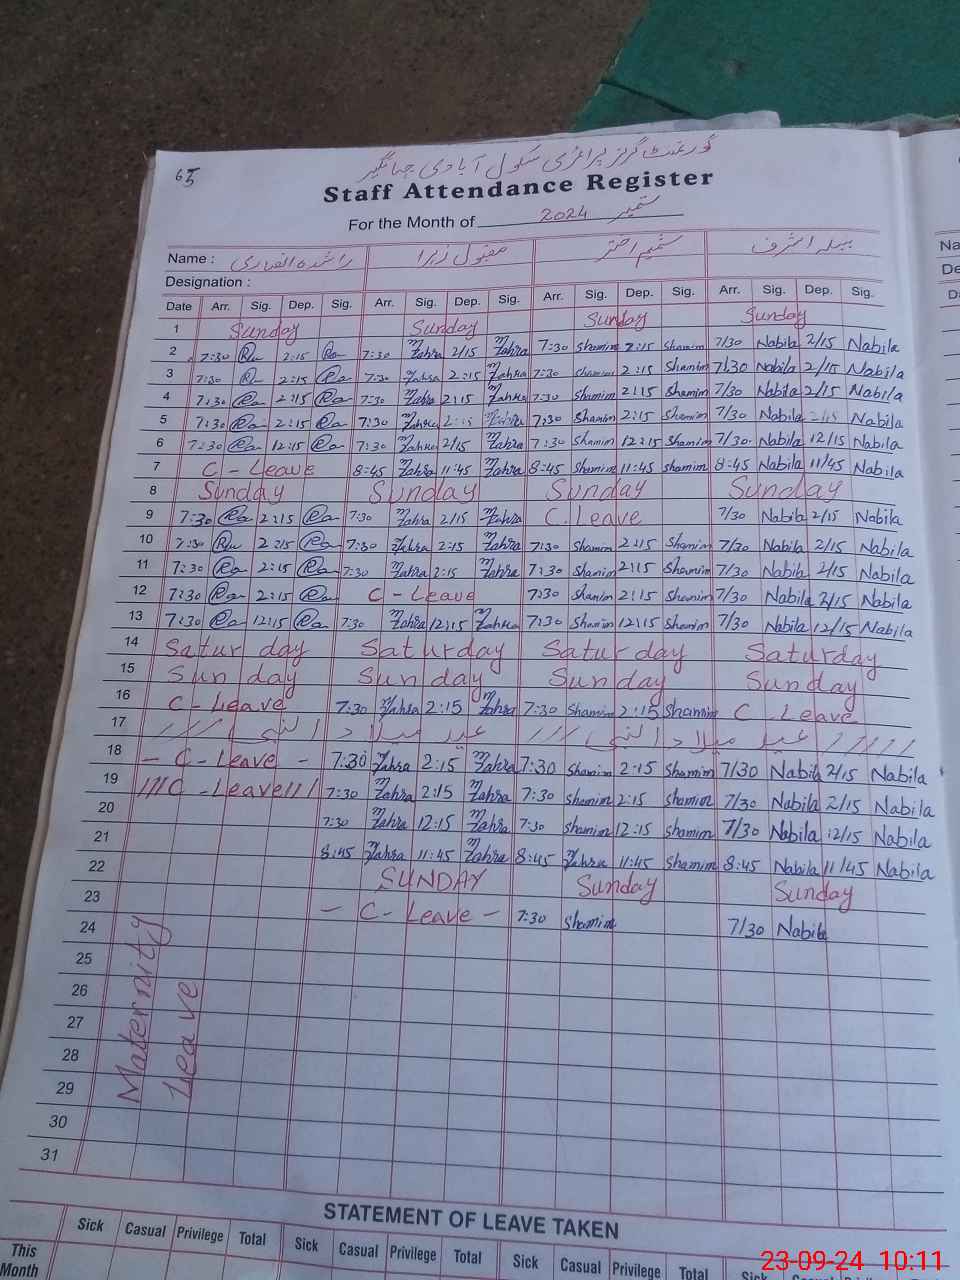 65
گورنمنٹ گرلز پرائمری سکول آبادی جہانگیر
Staff Attendance Register
For the Month of ستمبر 2024
Name : راشدہ انصاری مقبول زہرا شمیم اختر نبیلہ اشرف
Designation :
Date Arr. Sig. Dep. Sig. Arr. Sig. Dep. Sig. Arr. Sig. Dep. Sig. Arr. Sig. Dep. Sig.
1 Sunday Sunday Sunday Sunday
2 7:30 2:15 7:30 Zahra 2/15 Zahra 7:30 Shamim 2:15 Shamim 7/30 Nabila 2/15 Nabila
3 7:30 2:15 7:30 Zahra 2:15 Zahra 7:30 Shamim 2:15 Shamim 7/30 Nabila 2/15 Nabila
4 7:30 2:15 7:30 Zahra 2:15 Zahra 7:30 Shamim 2:15 Shamim 7/30 Nabila 2/15 Nabila
5 7:30 2:15 7:30 Zahra 2:15 Zahra 7:30 Shamim 2:15 Shamim 7/30 Nabila 2/15 Nabila
6 7:30 12:15 7:30 Zahra 2/15 Zahra 7:30 Shamim 12:15 Shamim 7/30 Nabila 12/15 Nabila
7 C - Leave 8:45 Zahra 11:45 Zahra 8:45 Shamim 11:45 Shamim 8:45 Nabila 11/45 Nabila
8 Sunday Sunday Sunday Sunday
9 7:30 2:15 7:30 Zahra 2/15 Zahra C. Leave 7/30 Nabila 2/15 Nabila
10 7:30 2:15 7:30 Zahra 2:15 Zahra 7:30 Shamim 2:15 Shamim 7/30 Nabila 2/15 Nabila
11 7:30 2:15 7:30 Zahra 2:15 Zahra 7:30 Shamim 2:15 Shamim 7/30 Nabila 2/15 Nabila
12 7:30 2:15 C - Leave 7:30 Shamim 2:15 Shamim 7/30 Nabila 2/15 Nabila
13 7:30 12:15 7:30 Zahra 12:15 Zahra 7:30 Shamim 12:15 Shamim 7/30 Nabila 12/15 Nabila
14 Saturday Saturday Saturday Saturday
15 Sunday Sunday Sunday Sunday
16 C - Leave 7:30 Zahra 2:15 Zahra 7:30 Shamim 2:15 Shamim C Leave
17 عید میلاد النبی عید میلاد النبی
18 - C - Leave - 7:30 Zahra 2:15 Zahra 7:30 Shamim 2:15 Shamim 7/30 Nabila 2/15 Nabila
19 ///C - Leave/// 7:30 Zahra 2:15 Zahra 7:30 Shamim 2:15 Shamim 7/30 Nabila 2/15 Nabila
20 7:30 Zahra 12:15 Zahra 7:30 Shamim 12:15 Shamim 7/30 Nabila 12/15 Nabila
21 8:45 Zahra 11:45 Zahra 8:45 Zahra 11:45 Shamim 8:45 Nabila 11/45 Nabila
22 SUNDAY Sunday Sunday
23 - C - Leave - 7:30 Shamim 7/30 Nabila
24
25
26
27
28
29
30
31
Maternity
Leave
STATEMENT OF LEAVE TAKEN
Sick Casual Privilege Total Sick Casual Privilege Total Sick Casual Privilege Total Sick
This
Month
23-09-24 10:11